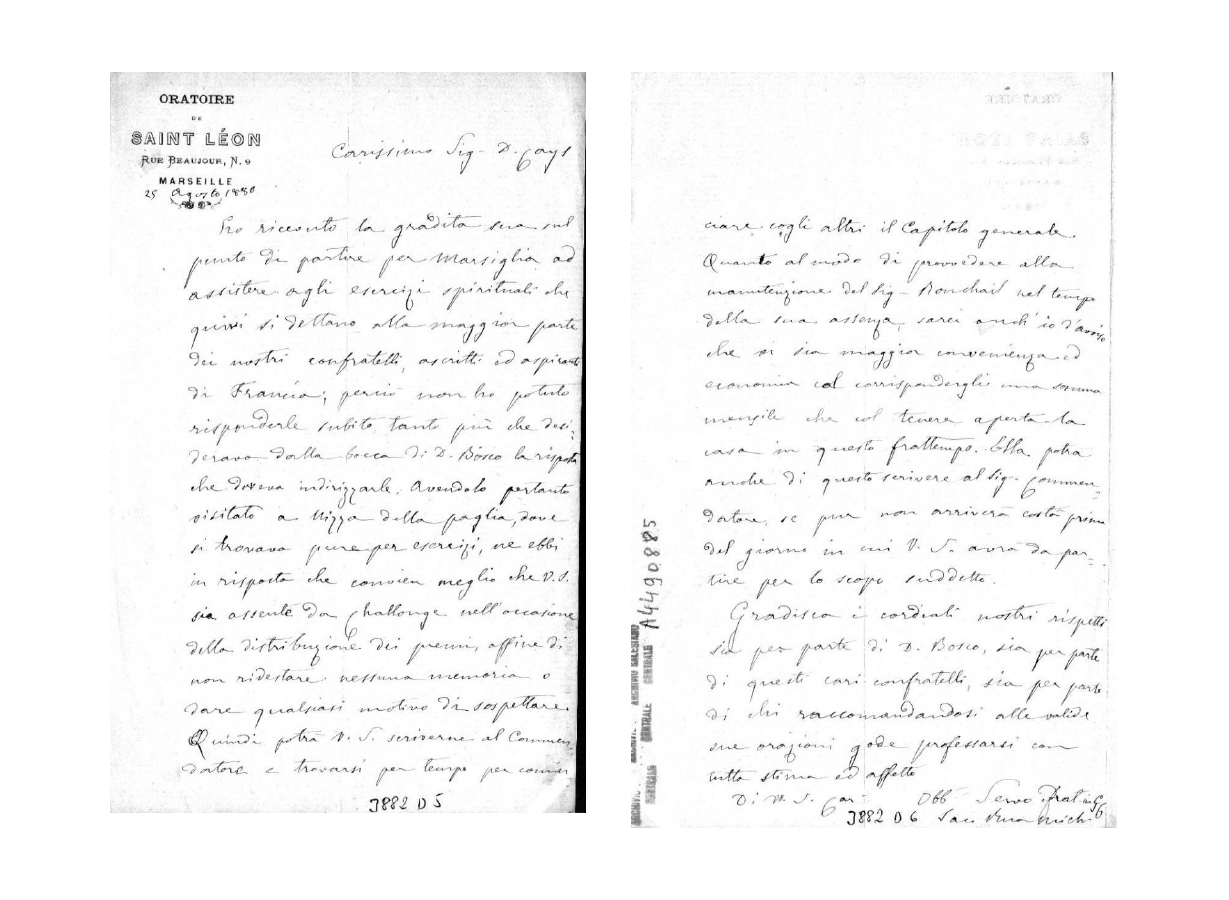 ORATOIRE
DE
SAINT LÉON
RUE BEAUJOUR, N. 9
MARSEILLE
25 Agosto 1880
Carissimo Sig. D. Cays
Ho ricevuto la gradita sua sul
punto di partire per Marsiglia ad
assistere agli esercizi spirituali che
quivi si dettano alla maggior parte
dei nostri confratelli, ascritti ed aspiranti
di Francia; perciò non ho potuto
risponderle subito, tanto più che desi-
derava dalla bocca di D. Bosco la risposta
che doveva indirizzarle. Avendolo pertanto
visitato a Nizza della paglia, dove
si trovava pure per esercizi, ne ebbi
in risposta che convien meglio che V. S.
sia assente da Challonge nell'occasione
della distribuzione dei premi, affine di
non ridestare nessuna memoria o
dare qualsiasi motivo di sospettare.
Quindi potrà V. S. scriverne al Commen-
datore e trovarsi per tempo per comin-
3882 D 5
ciare cogli altri il Capitolo generale.
Quanto al modo di provvedere alla
manutenzione del Sig. Ronchail nel tempo
della sua assenza, sarei anch'io d'avviso
che vi sia maggior convenienza ed
economia col corrispondergli una somma
mensile che col tenere aperta la
casa in questo frattempo. Ella potrà
anche di questo scrivere al Sig. Commen-
datore, se pur non arriverà costà prima
del giorno in cui V. S. avrà da par-
tire per lo scopo suddetto.
Gradisca i cordiali nostri rispetti
sia per parte di D. Bosco, sia per parte
di questi cari confratelli, sia per parte
di chi raccomandandosi alle valide
sue orazioni gode professarsi con
tutta stima ed affetto
Di V. S. Car.
Obb. Servo Frat. in G
Sac. Rua Mich
3882 D 6
A4490885
ARCHIVIO SALESIANO
CENTRALE